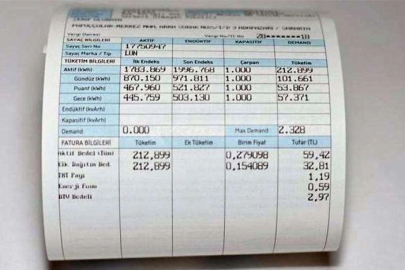 PAPUCCULAR-MERKEZ MAH.
Vergi Dairesi Vergi No/TC No
SAYAÇ BİLGİLERİ AKTİF ENDÜKTİF KAPASİTİF DEMAND
Sayaç Seri No 17750947
Sayaç Marka / Tip LUN
TÜKETİM BİLGİLERİ İlk Endeks Son Endeks Çarpan Tüketim
Aktif (kWh) 1783.869 1996.768 1.000 212.899
Gündüz (kWh) 870.150 971.811 1.000 101.661
Puant (kWh) 467.960 521.827 1.000 53.867
Gece (kWh) 445.759 503.130 1.000 57.371
Endüktif (kvArh)
Kapasitif (kvArh)
Demand 0.000 Max Demand 2.328
FATURA BİLGİLERİ Tüketim Ek Tüketim Birim Fiyat Tutar (TL)
Aktif Bedel (Tüm) 212,899 0,279098 59,42
Elk Dağıtım Bed. 212,899 0,154089 32,81
TRT Payı 1,19
Enerji Fonu 0,59
BTV Bedeli 2,97